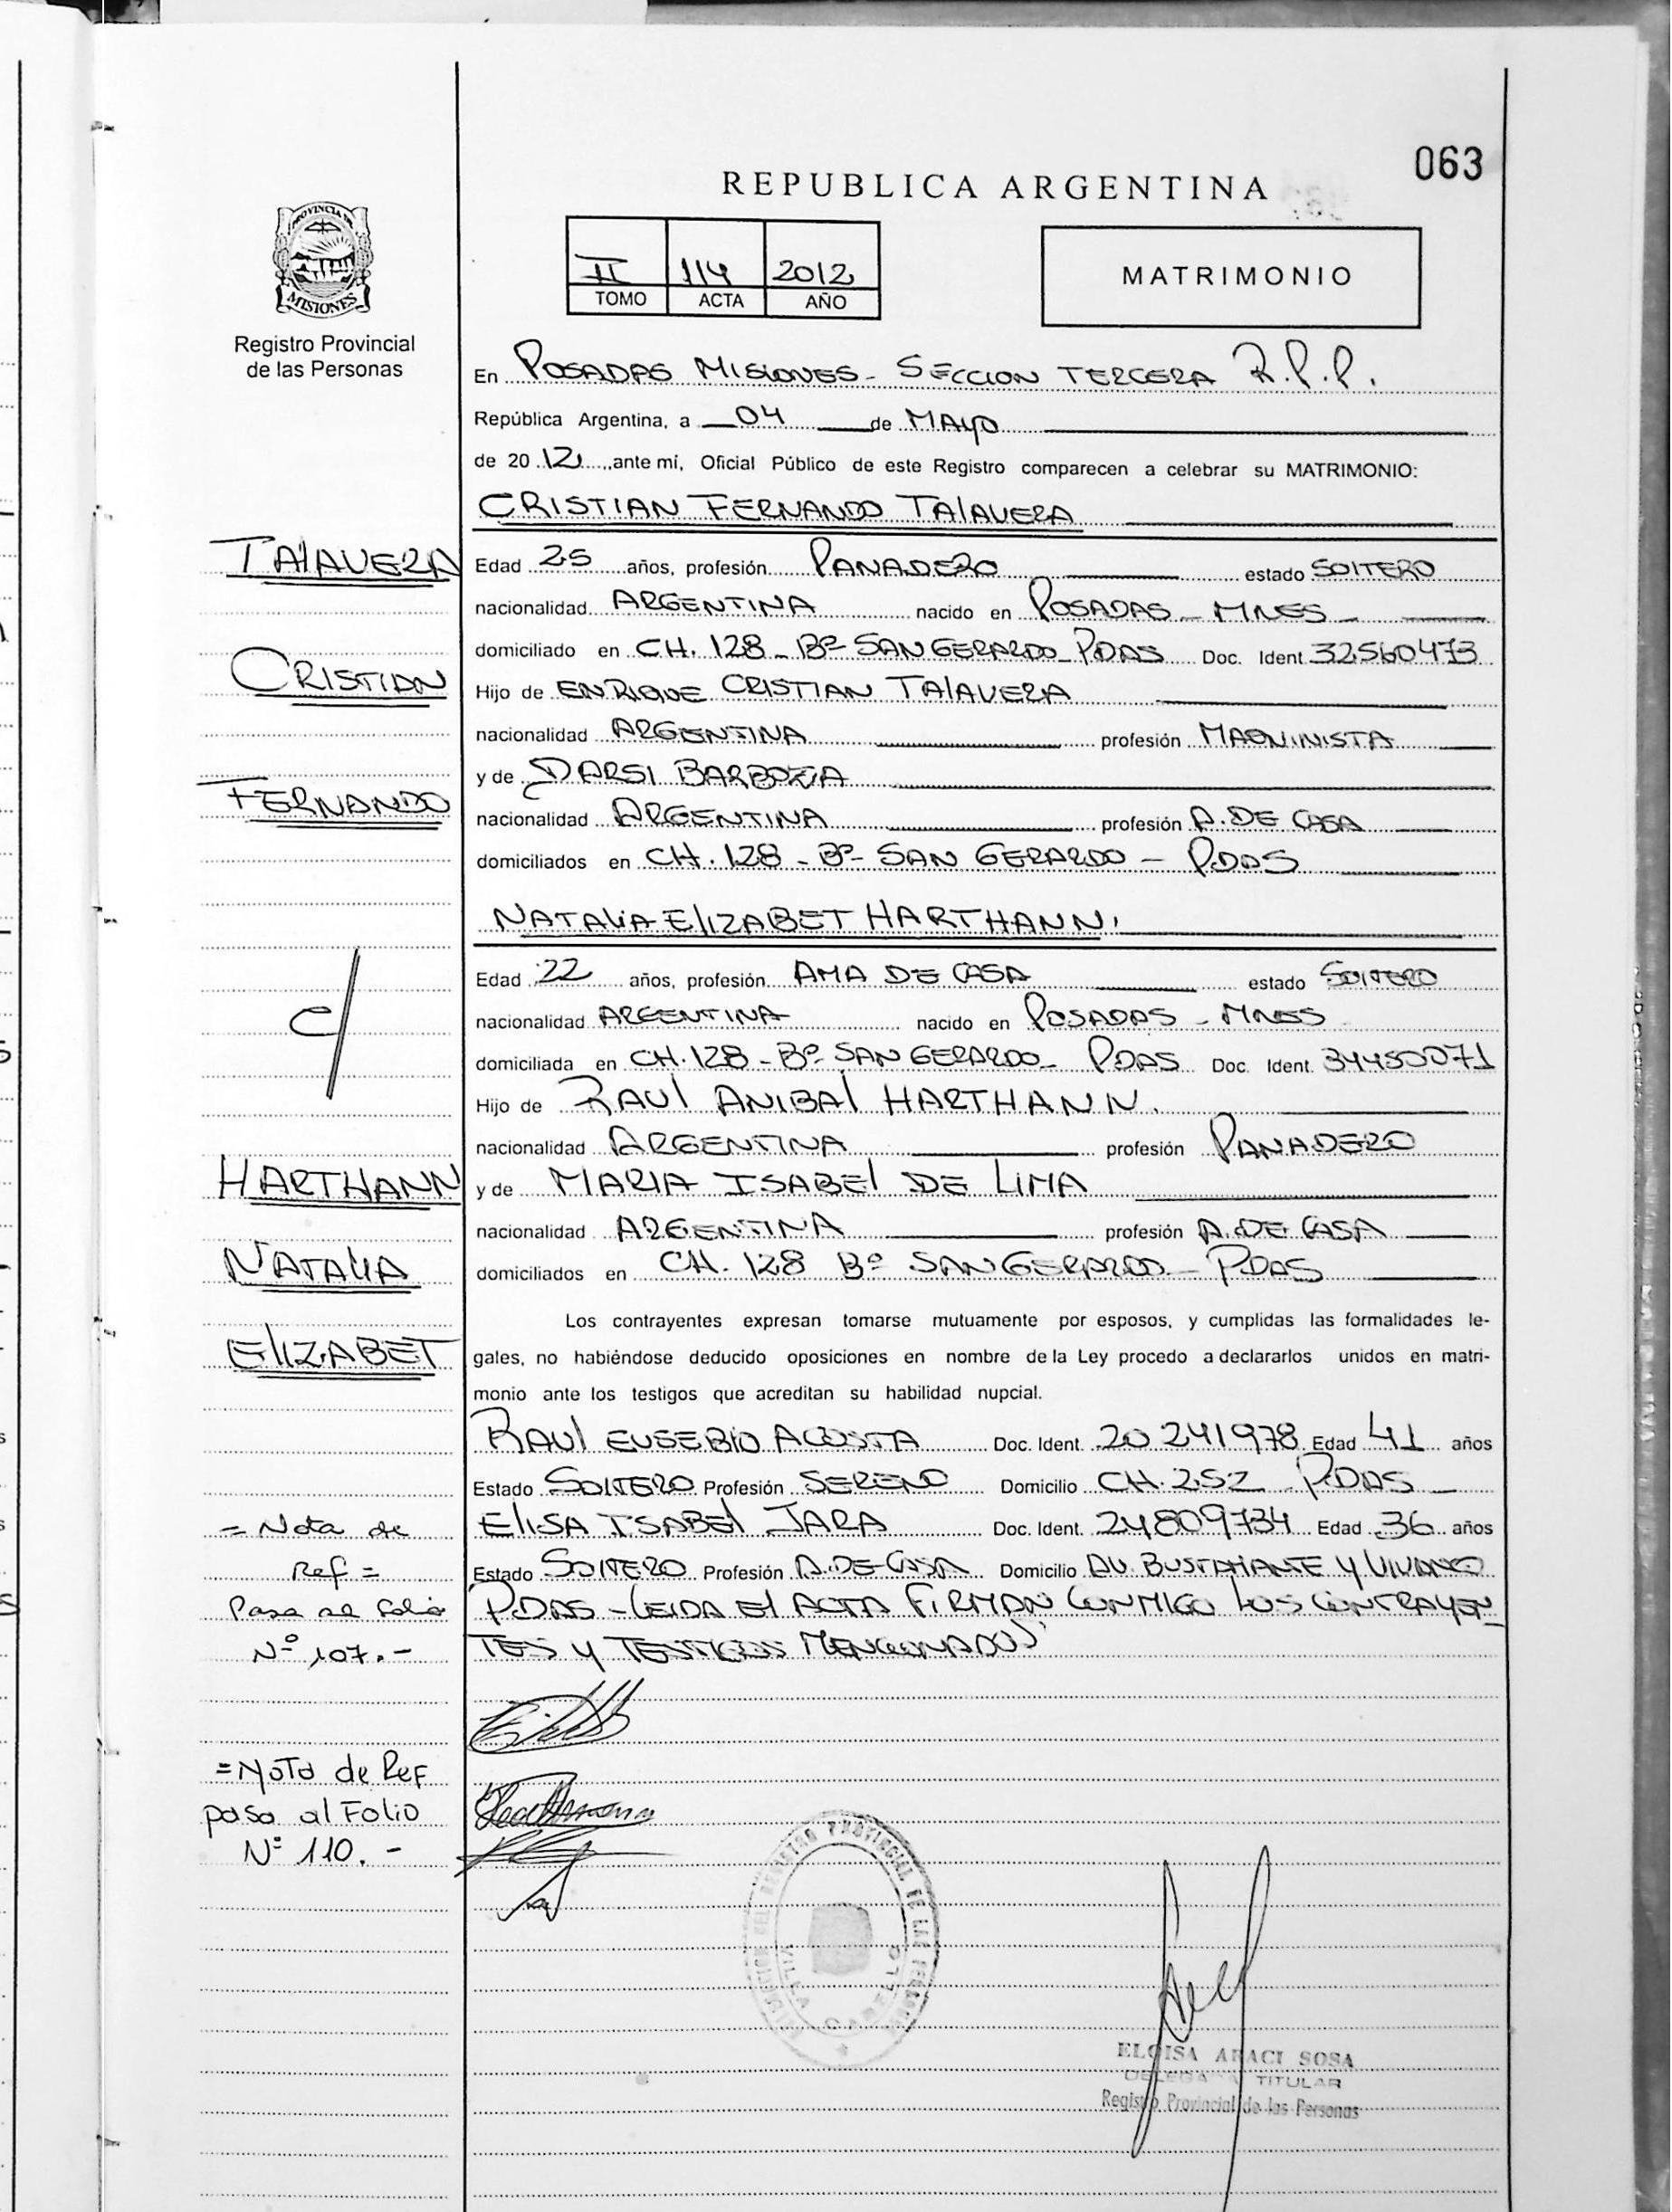 063
REPUBLICA ARGENTINA
PROVINCIA DE
MISIONES
Registro Provincial
de las Personas
II 114 2012
TOMO ACTA AÑO
MATRIMONIO
En POSADAS MISIONES - SECCION TERCERA R.P.P.
República Argentina, a 04 de MAYO
de 20 12 ante mí, Oficial Público de este Registro comparecen a celebrar su MATRIMONIO:
CRISTIAN FERNANDO TALAVERA
TALAVERA
CRISTIAN
FERNANDO
c/
HARTHANN
NATALIA
ELIZABET
Edad 25 años, profesión PANADERO estado SOLTERO
nacionalidad ARGENTINA nacido en POSADAS - MNES -
domiciliado en CH. 128 - Bº SAN GERARDO - PDAS Doc. Ident. 32560473
Hijo de ENRIQUE CRISTIAN TALAVERA
nacionalidad ARGENTINA profesión MAQUINISTA
y de DARSI BARBOZA
nacionalidad ARGENTINA profesión A. DE CASA
domiciliados en CH. 128 - Bº SAN GERARDO - PDAS
NATALIA ELIZABET HARTHANN.
Edad 22 años, profesión AMA DE CASA estado SOLTERO
nacionalidad ARGENTINA nacido en POSADAS - MNES
domiciliada en CH. 128 - Bº SAN GERARDO - PDAS Doc. Ident. 34450071
Hijo de RAUL ANIBAL HARTHANN.
nacionalidad ARGENTINA profesión PANADERO
y de MARIA ISABEL DE LIMA
nacionalidad ARGENTINA profesión A. DE CASA
domiciliados en CH. 128 Bº SAN GERARDO - PDAS
Los contrayentes expresan tomarse mutuamente por esposos, y cumplidas las formalidades le-
gales, no habiéndose deducido oposiciones en nombre de la Ley procedo a declararlos unidos en matri-
monio ante los testigos que acreditan su habilidad nupcial.
RAUL EUSEBIO ACOSTA Doc. Ident. 20 241978 Edad 41 años
Estado SOLTERO Profesión SERENO Domicilio CH. 252 PDAS -
ELISA ISABEL JARA Doc. Ident. 24809734 Edad 36 años
Estado SOLTERO Profesión A. DE CASA Domicilio AV. BUSTAMANTE Y VIVANCO
PDAS - LEIDA EL ACTA FIRMAN CONMIGO LOS CONTRAYEN-
TES Y TESTIGOS MENCIONADOS
= Nota de
Ref =
Pasa al folio
Nº 107. -
= Nota de Ref
pasa al Folio
Nº 110. -
REGISTRO PROVINCIAL DE LAS PERSONAS
VILLA CABELLO
ELOISA ARACI SOSA
DELEGADA TITULAR
Registro Provincial de las Personas